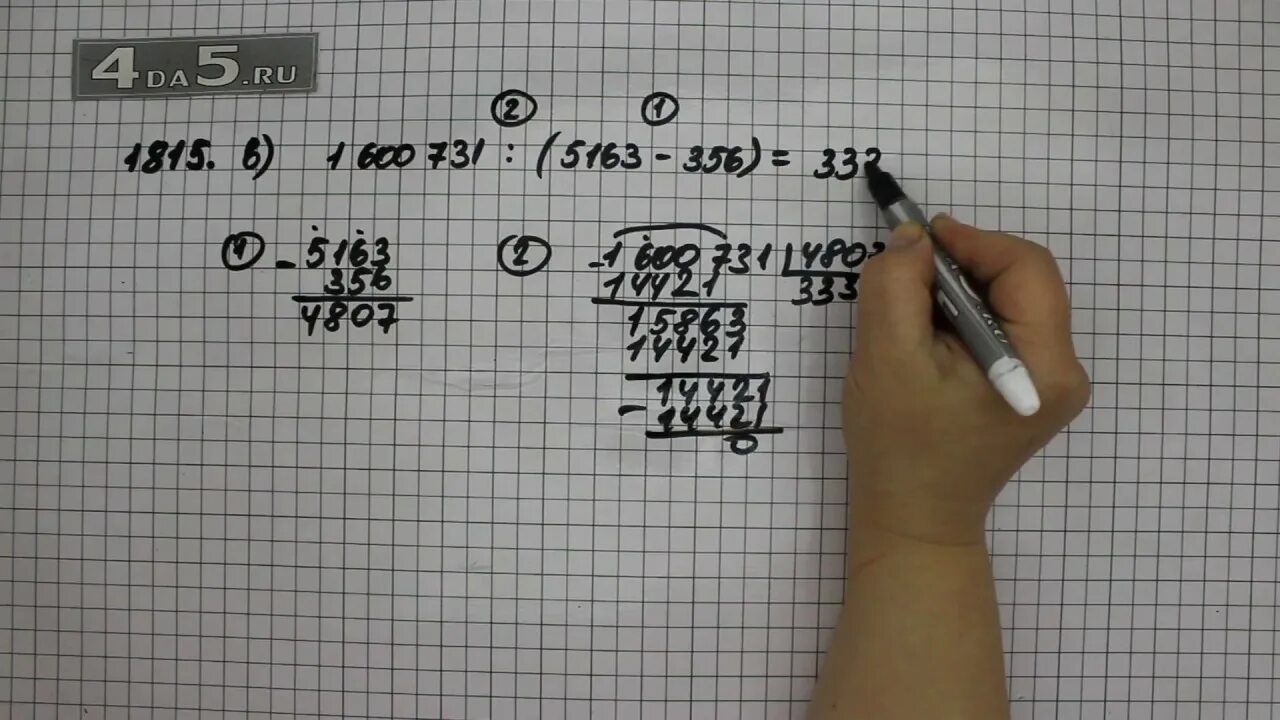 4DA5.RU
② ①
1815. в) 1 600 731 : (5163 - 356) = 333
① - 5163
356
4807
② - 1 600 731 | 4807
14421 333
15863
14421
- 14421
14421
0